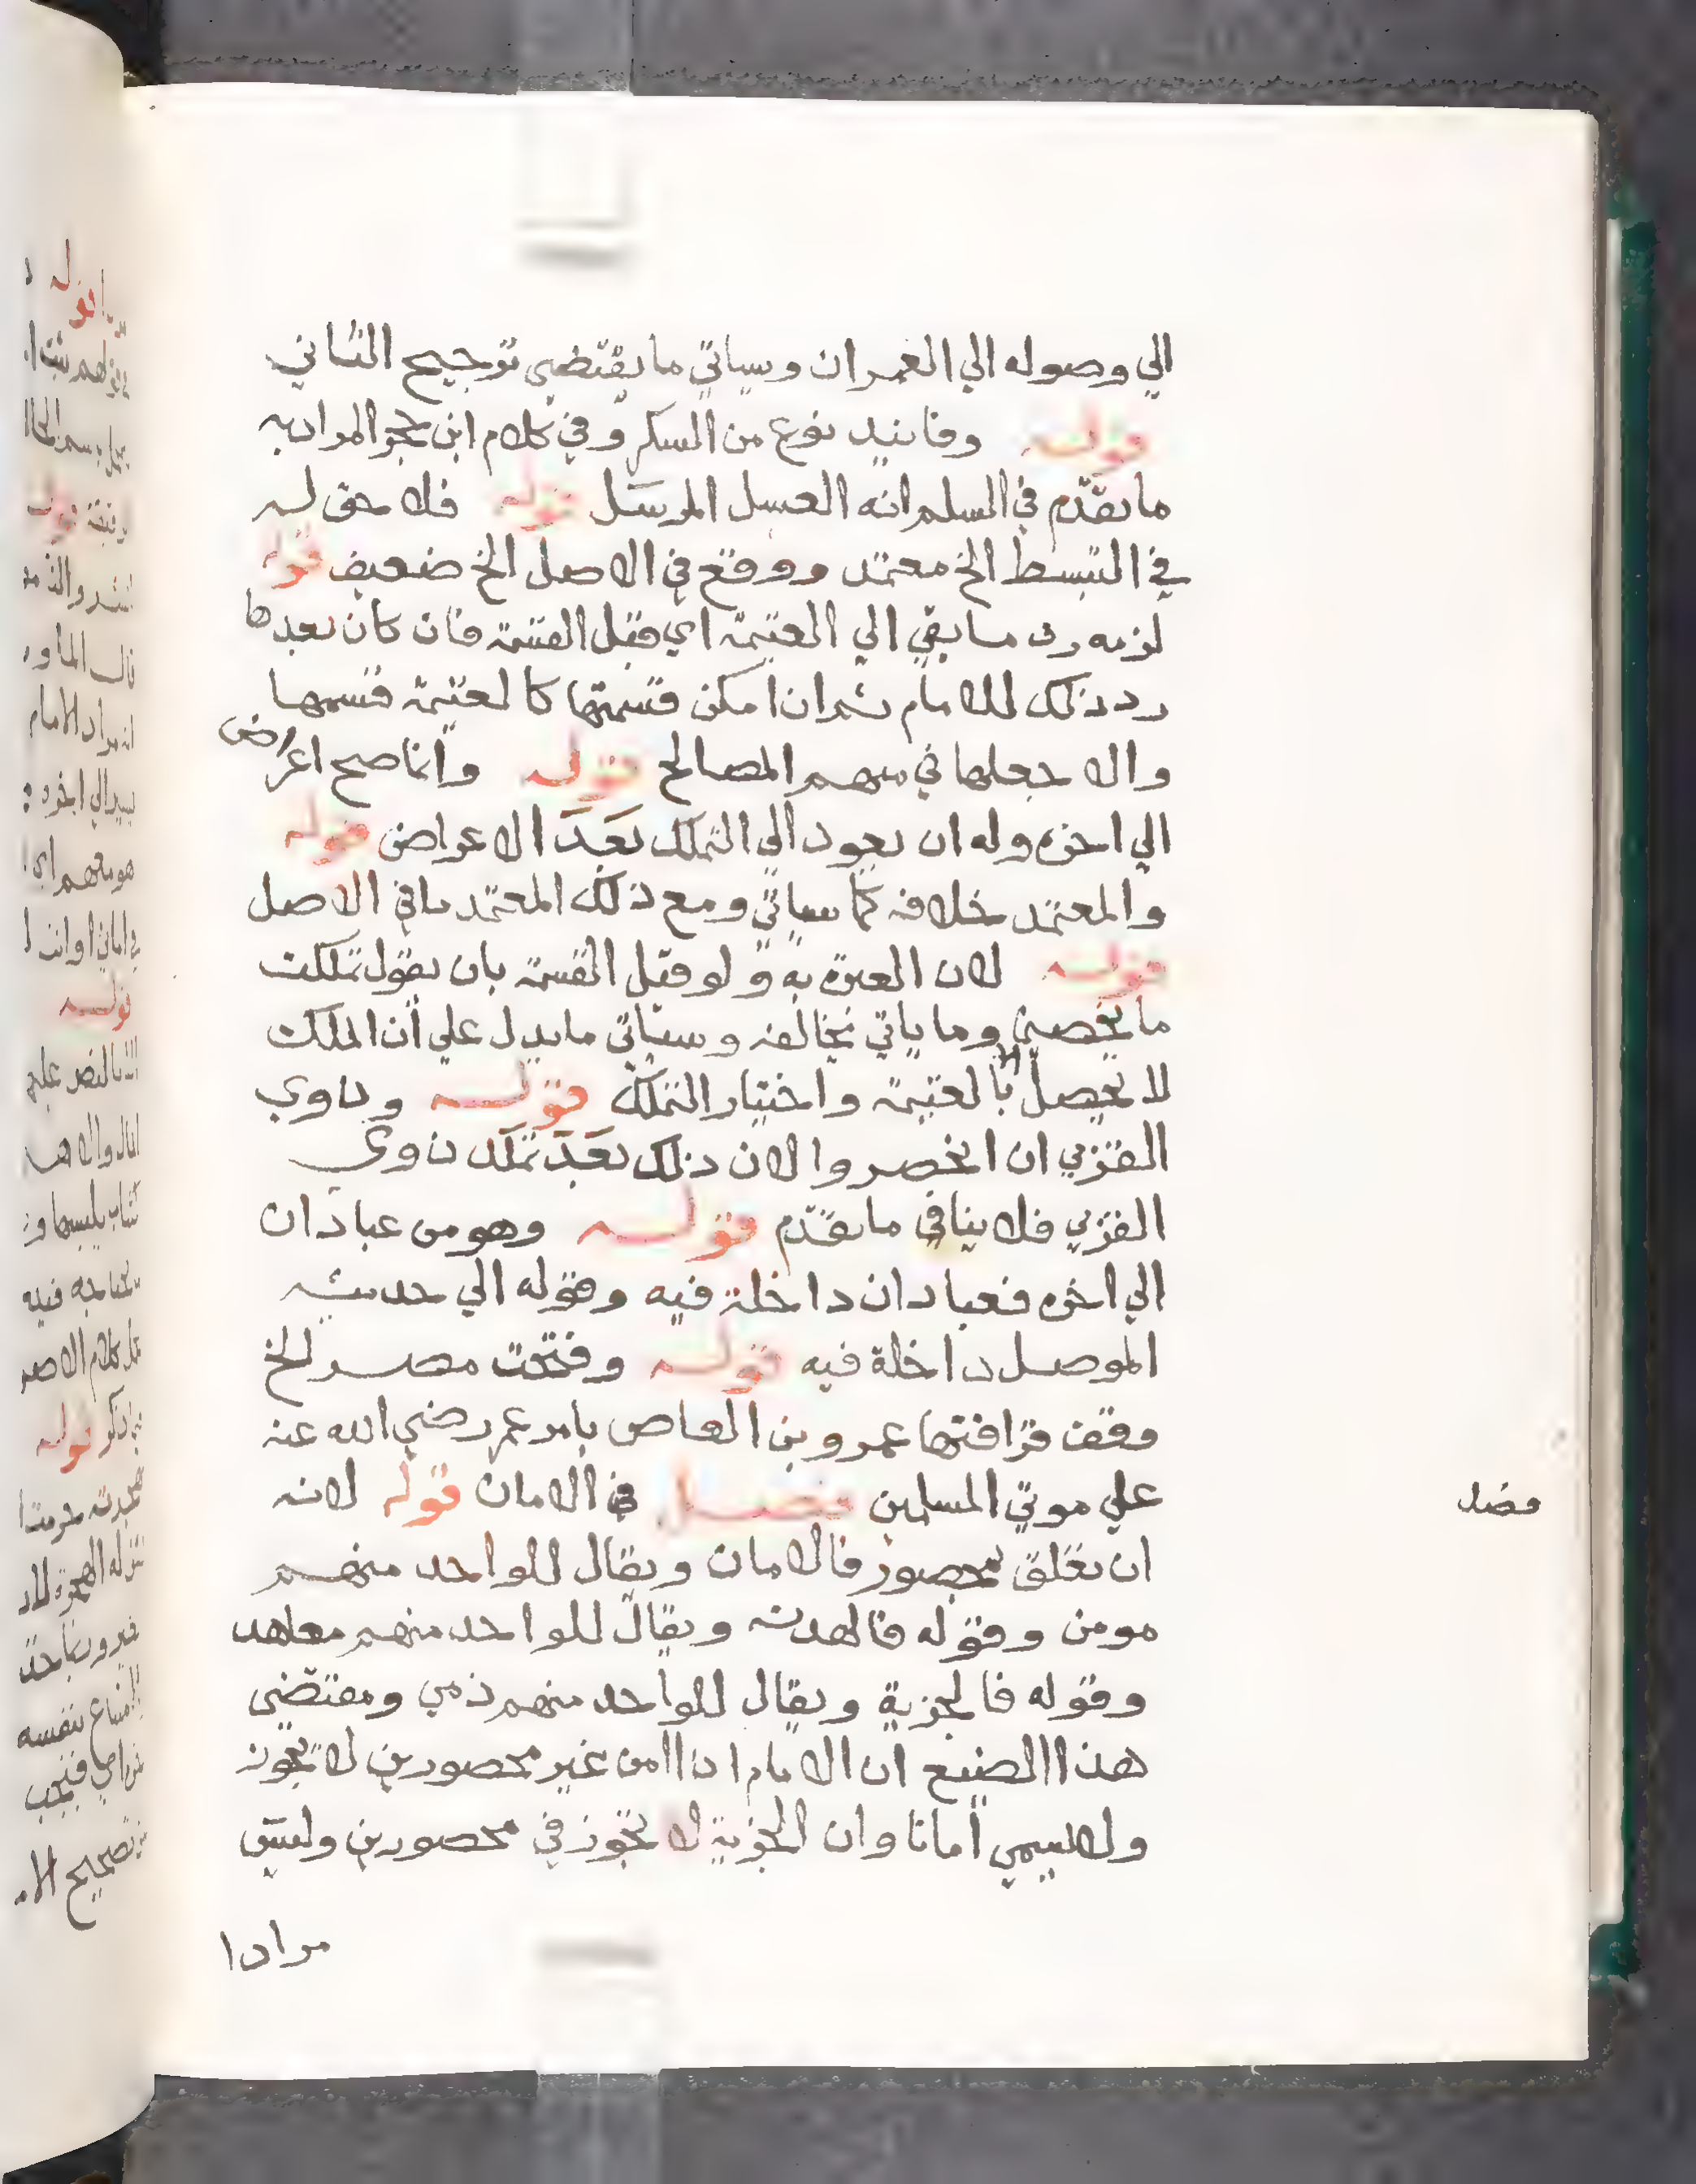 الي وصوله الي العمران وسياتي ما يقتضي ترجيح الثاني
قوله وفانيد نوع من السكر وفي كلام ابن حجر المراد به
ما تقدم في السلم انه العسل المرسل قوله فلا حق له
في التبسط الخ معتمد ووقع في الاصل الخ ضعيف قوله
لزمه رد ما بقي الي الغنيمة اي قبل القسمة فان كان بعدها
رد ذلك للامام ثم ان امكن قسمتها كالغنيمة قسمها
والا جعلها في سهم المصالح قوله وانما صح اعراض
الي اخره وله ان يعود الي التملك بعد الاعراض قوله
والمعتمد خلافه كما سياتي ومع ذلك المعتمد ما في الاصل
قوله لان العبرة به ولو قبل القسمة بان يقول تملكت
ما يخصني وما ياتي يخالفه وسياتي ما يدل علي ان الملك
لا يحصل الا بالغنيمة واختيار التملك قوله وناوي
القربي ان انحصروا لان ذلك بعد تملك ناوي
القربي فلا ينافي ما تقدم قوله وهو من عبادان
الي اخره فعبادان داخلة فيه وقوله الي حديثه
الموصل داخلة فيه قوله وفتحت مصر الخ
وقف قرافتها عمرو بن العاص بامر عمر رضي الله عنه
علي موتي المسلمين فصل في الامان قوله لانه
فصل
ان تعلق بمحصور فالامان ويقال للواحد منهم
مومن وقوله فالهدنه ويقال للواحد منهم معاهد
وقوله فالجزية ويقال للواحد منهم ذمي ومقتضي
هذا الصنيع ان الامام اذا امن غير محصورين لا يجوز
ولا يسمي امانا وان الجزية لا تجوز في محصورين وليس
مرادا